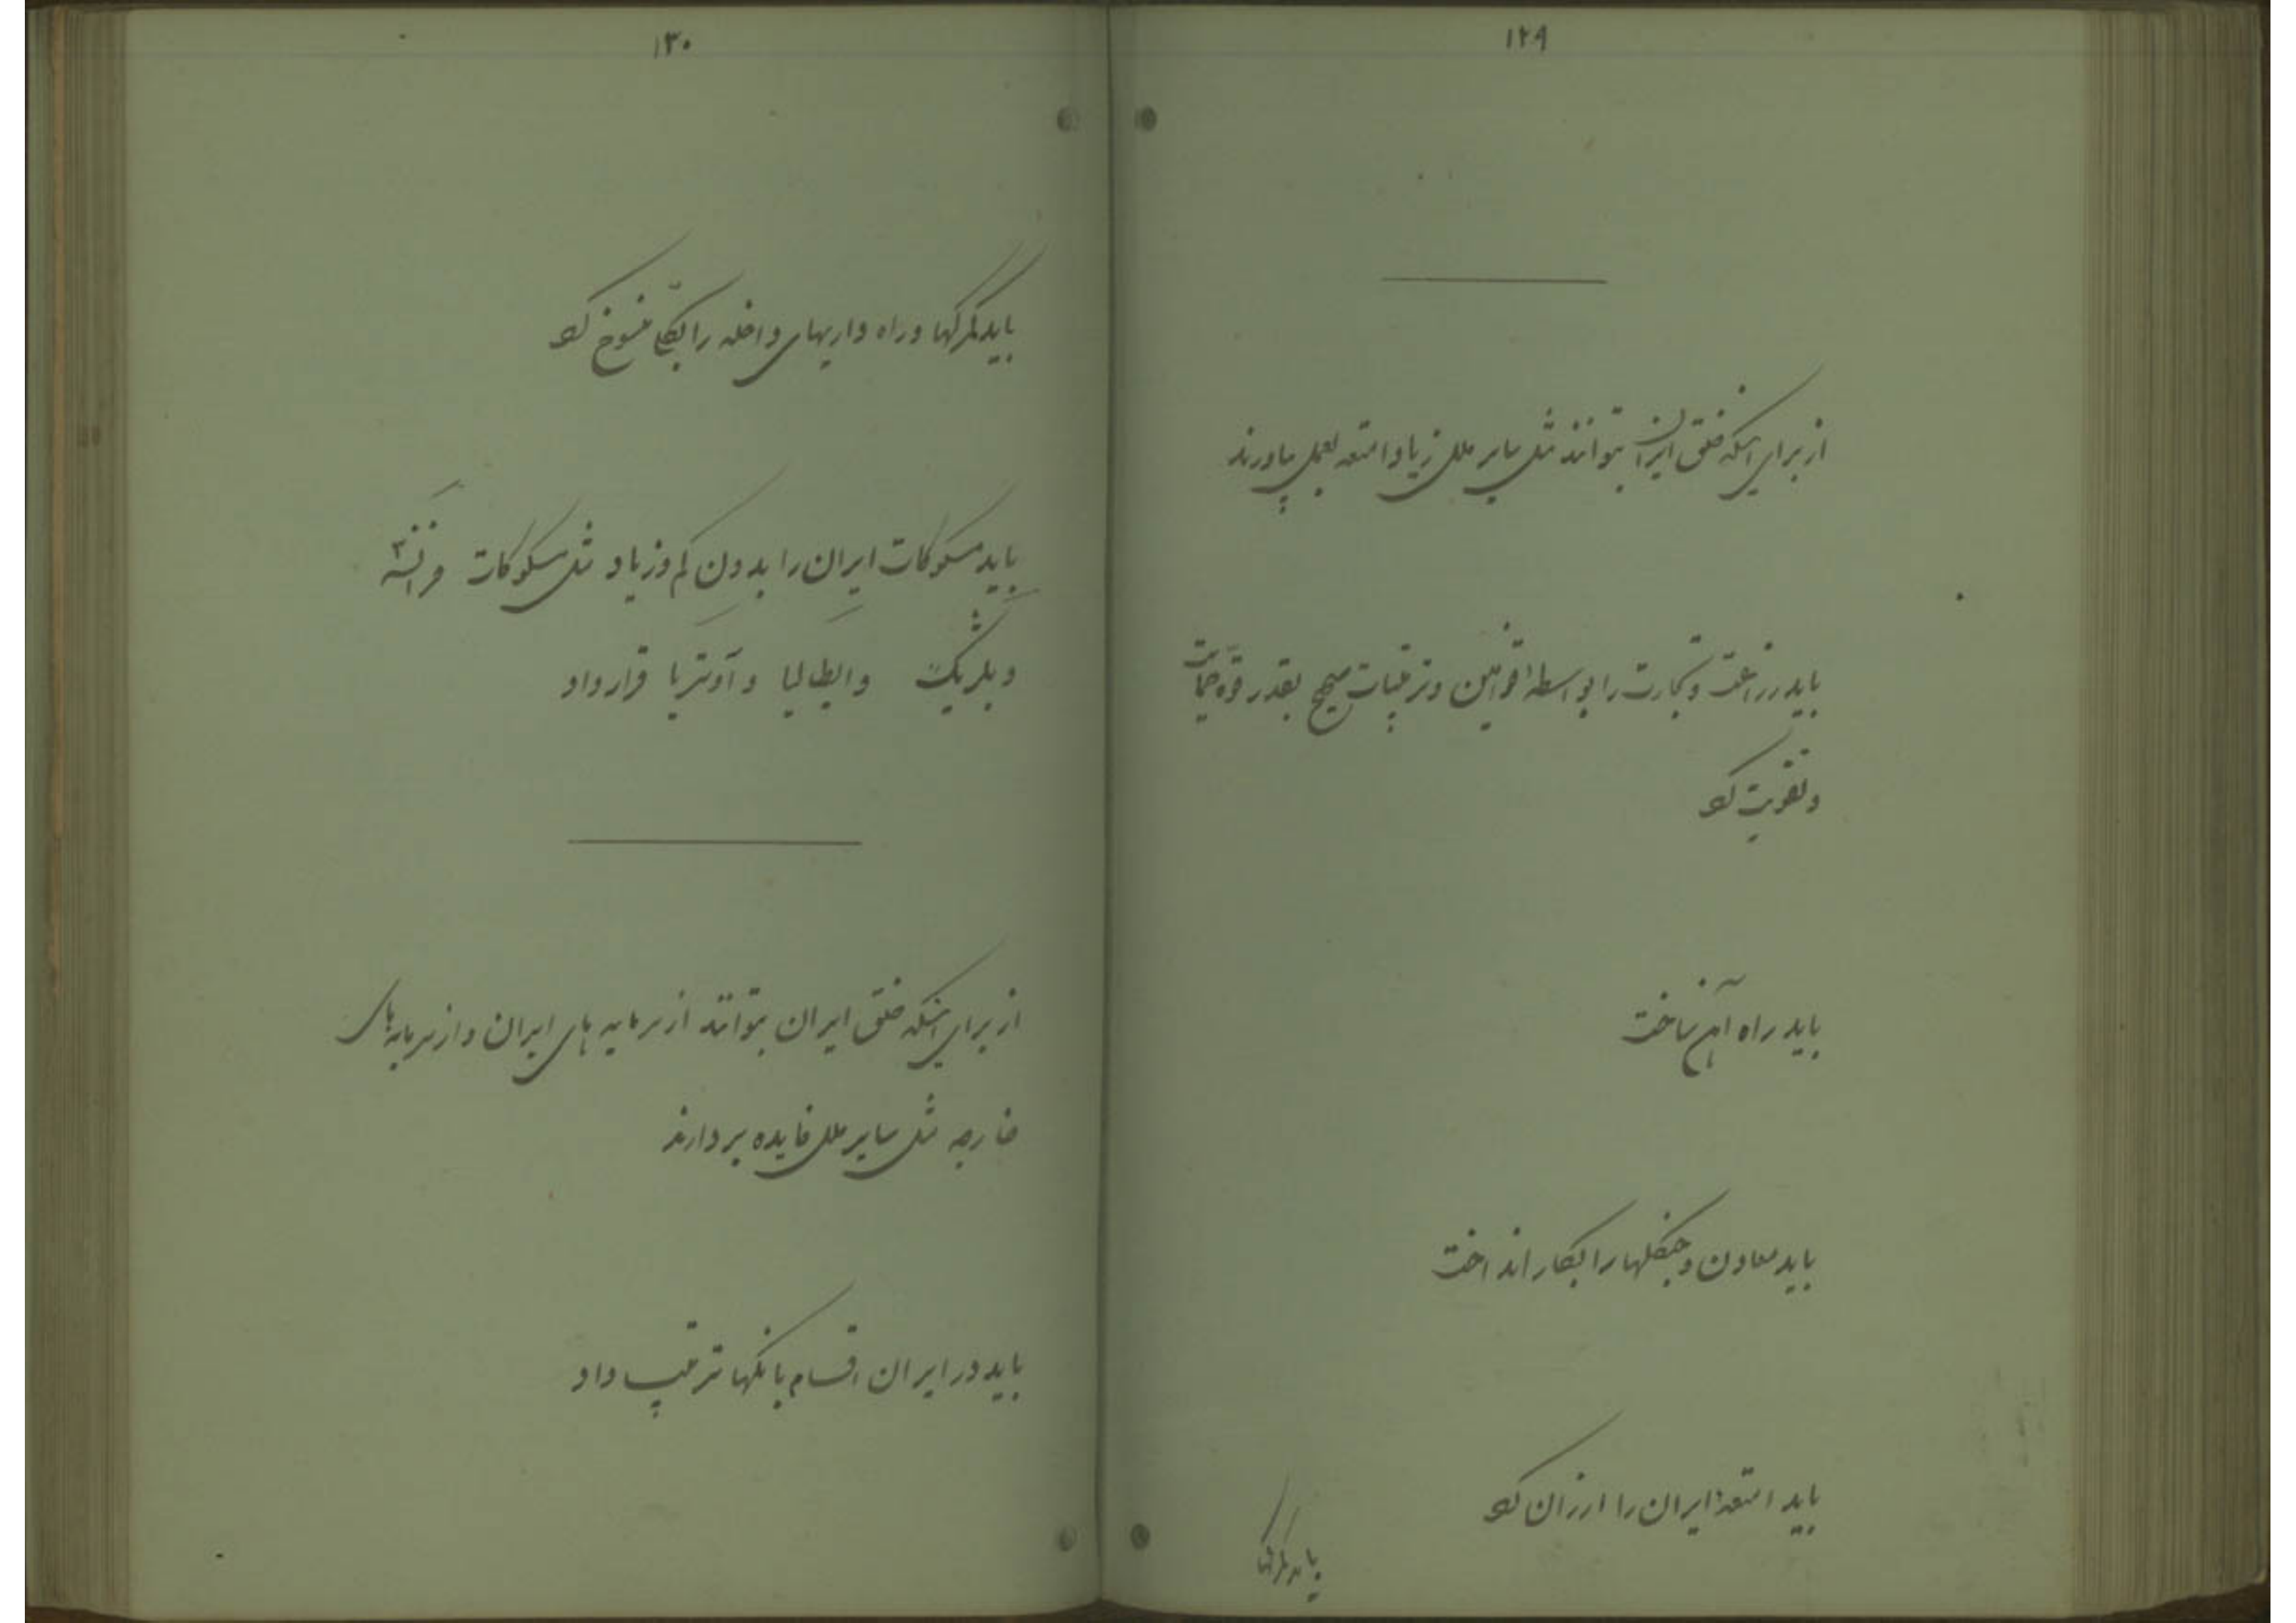 ۱۲۹
از برای اینکه خلق ایران بتوانند مثل سایر ملل زیاد امتعه بعمل بیاورند
باید زراعت و تجارت را بواسطهٔ قوانین و ترتیبات صحیح بقدر قوّه حمایت
و تقویت کرد
باید راه آهن ساخت
باید معادن و جنگلها را بکار انداخت
باید امتعهٔ ایران را ارزان کرد
باید گمرکها
۱۳۰
باید گمرکها و راه داریهای داخله را بکلّی منسوخ کرد
باید مسکوکات ایران را بدون کم و زیاد مثل مسکوکات فرانسه
و بلژیک و ایطالیا و آوستریا قرار داد
از برای اینکه خلق ایران بتوانند از سرمایه های ایران و از سرمایه‌های
خارجه مثل سایر ملل فایده بردارند
باید در ایران اقسام بانکها ترتیب داد